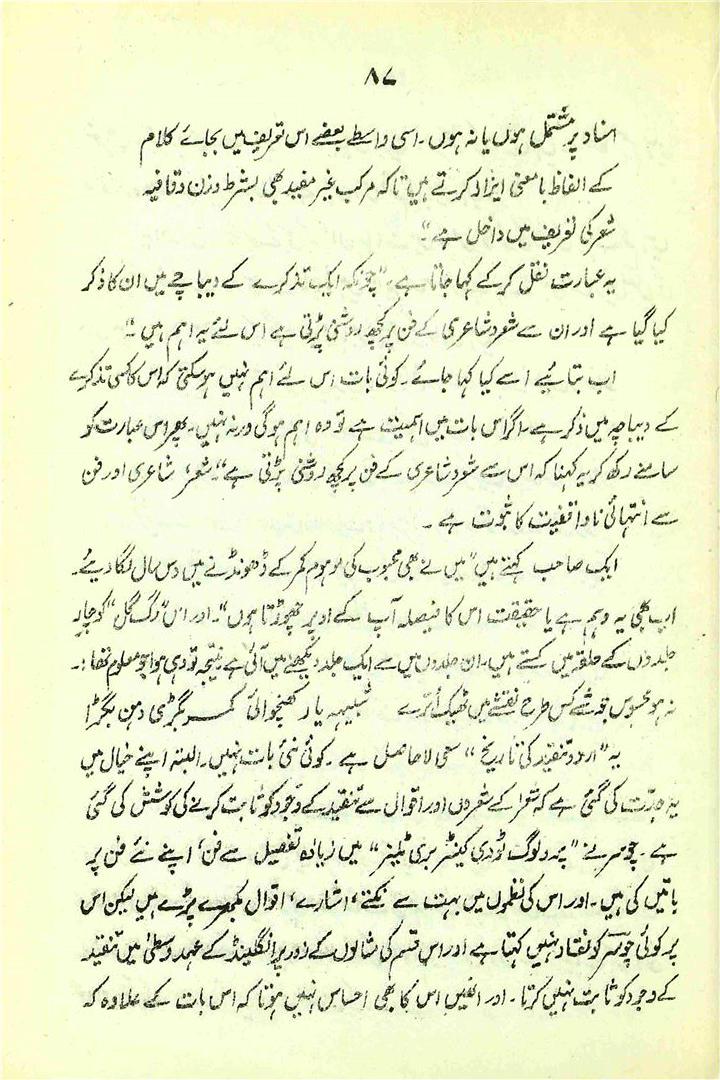 ۸۷
اسناد پر مشتمل ہوں یا نہ ہوں ۔ اسی واسطے بعضے اس تعریف میں بجائے کلام
کے الفاظ با معنی ایزاد کرتے ہیں تاکہ مرکب غیر مفید بھی بشرط وزن و قافیہ
شعر کی تعریف میں داخل ہے "
یہ عبارت نقل کر کے کہا جاتا ہے ، " چونکہ ایک تذکرے کے دیباچے میں ان کا ذکر
کیا گیا ہے اور ان سے شعر و شاعری کے فن پر کچھ روشنی پڑتی ہے اس لئے یہ اہم ہیں "
اب بتائیے اسے کیا کہا جائے ۔ کوئی بات اس لئے اہم نہیں ہو سکتی کہ اس کا کسی تذکرے
کے دیباچہ میں ذکر ہے ۔ اگر اس بات میں اہمیت ہے تو وہ اہم ہوگی ورنہ نہیں ۔ پھر اس عبارت کو
سامنے رکھ کر یہ کہنا کہ اس سے شعر و شاعری کے فن پر کچھ روشنی پڑتی ہے " شعر ، شاعری اور فن
سے انتہائی ناواقفیت کا ثبوت ہے ۔
ایک صاحب کہتے ہیں " میں نے بھی محبوب کی موہوم کمر کے ڈھونڈنے میں دس سال لگا دیئے ۔
اب بھی یہ وہم ہے یا حقیقت اس کا فیصلہ آپ کے اوپر چھوڑتا ہوں " ۔ اور اس " رگ گل " کو چار
جلدوں کے حلقہ میں کستے ہیں ۔ ان جلدوں میں سے ایک جلد دیکھنے میں آئی ہے نتیجہ تو وہی ہوا جو معلوم تھا :۔
نہ ہو محسوس جو شے کس طرح نقشے میں ٹھیک اترے شبیہہ یار کھنچوائی کمر بگڑی دہن بگڑا
یہ " اردو تنقید کی تاریخ " سعی لاحاصل ہے ۔ کوئی نئی بات نہیں ۔ البتہ اپنے خیال میں
یہ جدت کی گئی ہے کہ شعرا کے شعروں اور اقوال سے تنقید کے وجود کو ثابت کرنے کی کوشش کی گئی
ہے ۔ چوسر نے " پرولوگ ٹو دی کینٹر بری ٹیلیز " میں زیادہ تفصیل سے فن ، اپنے نئے فن پر
باتیں کی ہیں ۔ اور اس کی نظموں میں بہت سے نکتے ، اشارے ، اقوال بکھرے پڑے ہیں لیکن اس
پر کوئی چوسر کو نقاد نہیں کہتا ہے اور اس قسم کی مثالوں کے زور پر انگلینڈ کے عہد وسطیٰ میں تنقید
کے وجود کو ثابت نہیں کرتا ۔ اور انھیں اس کا بھی احساس نہیں ہوتا کہ اس بات کے علاوہ کہ